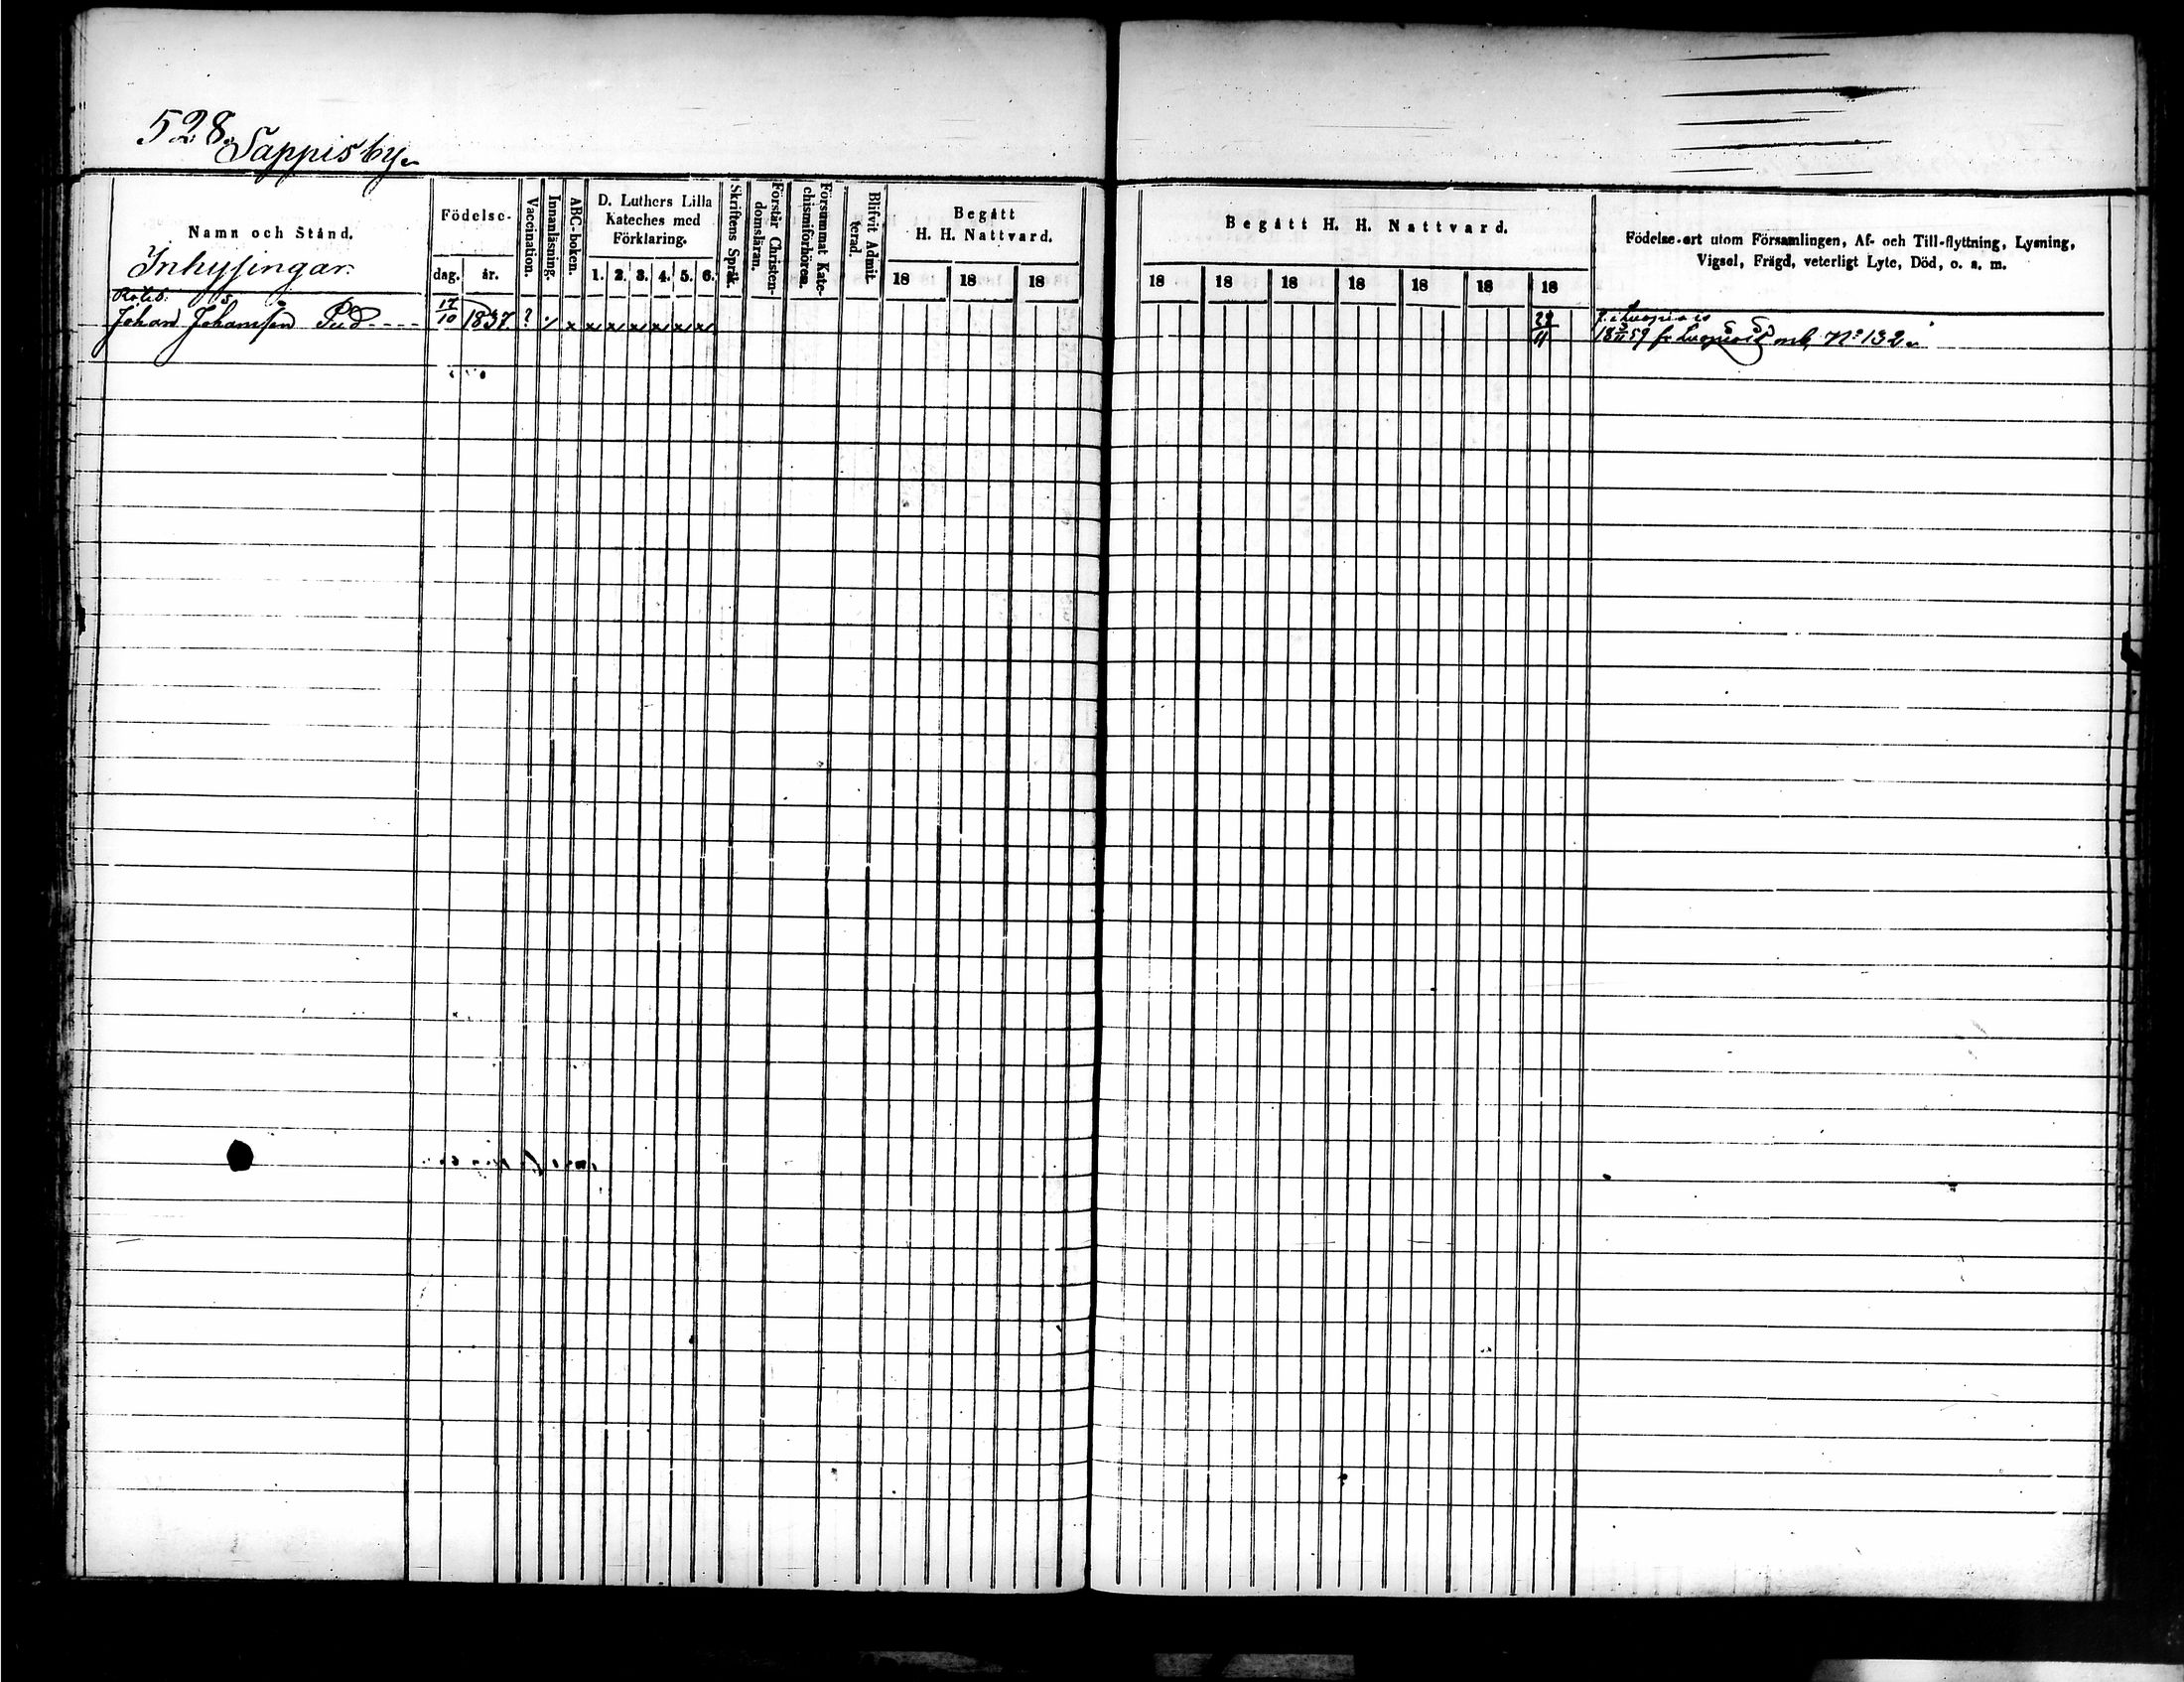 528.
Sappisby.
Namn och Stånd.
Födelse-
dag. år.
Vaccination.
Innanläsning.
ABC-boken.
D. Luthers Lilla
Kateches med
Förklaring.
1. 2. 3. 4. 5. 6.
Skriftens Språk.
Förstår Christen-
domsläran.
Försummat Kate-
chismiförhören.
Blifvit Admit-
terad.
Begått
H. H. Nattvard.
18 18 18
Begått H. H. Nattvard.
18 18 18 18 18 18 18
Födelse-ort utom Församlingen, Af- och Till-flyttning, Lysning,
Vigsel, Frägd, veterligt Lyte, Död, o. s. m.
Inhysingar.
Johan Johansson 17/10 1837 ? x x x x x x x 28/11 No 132.